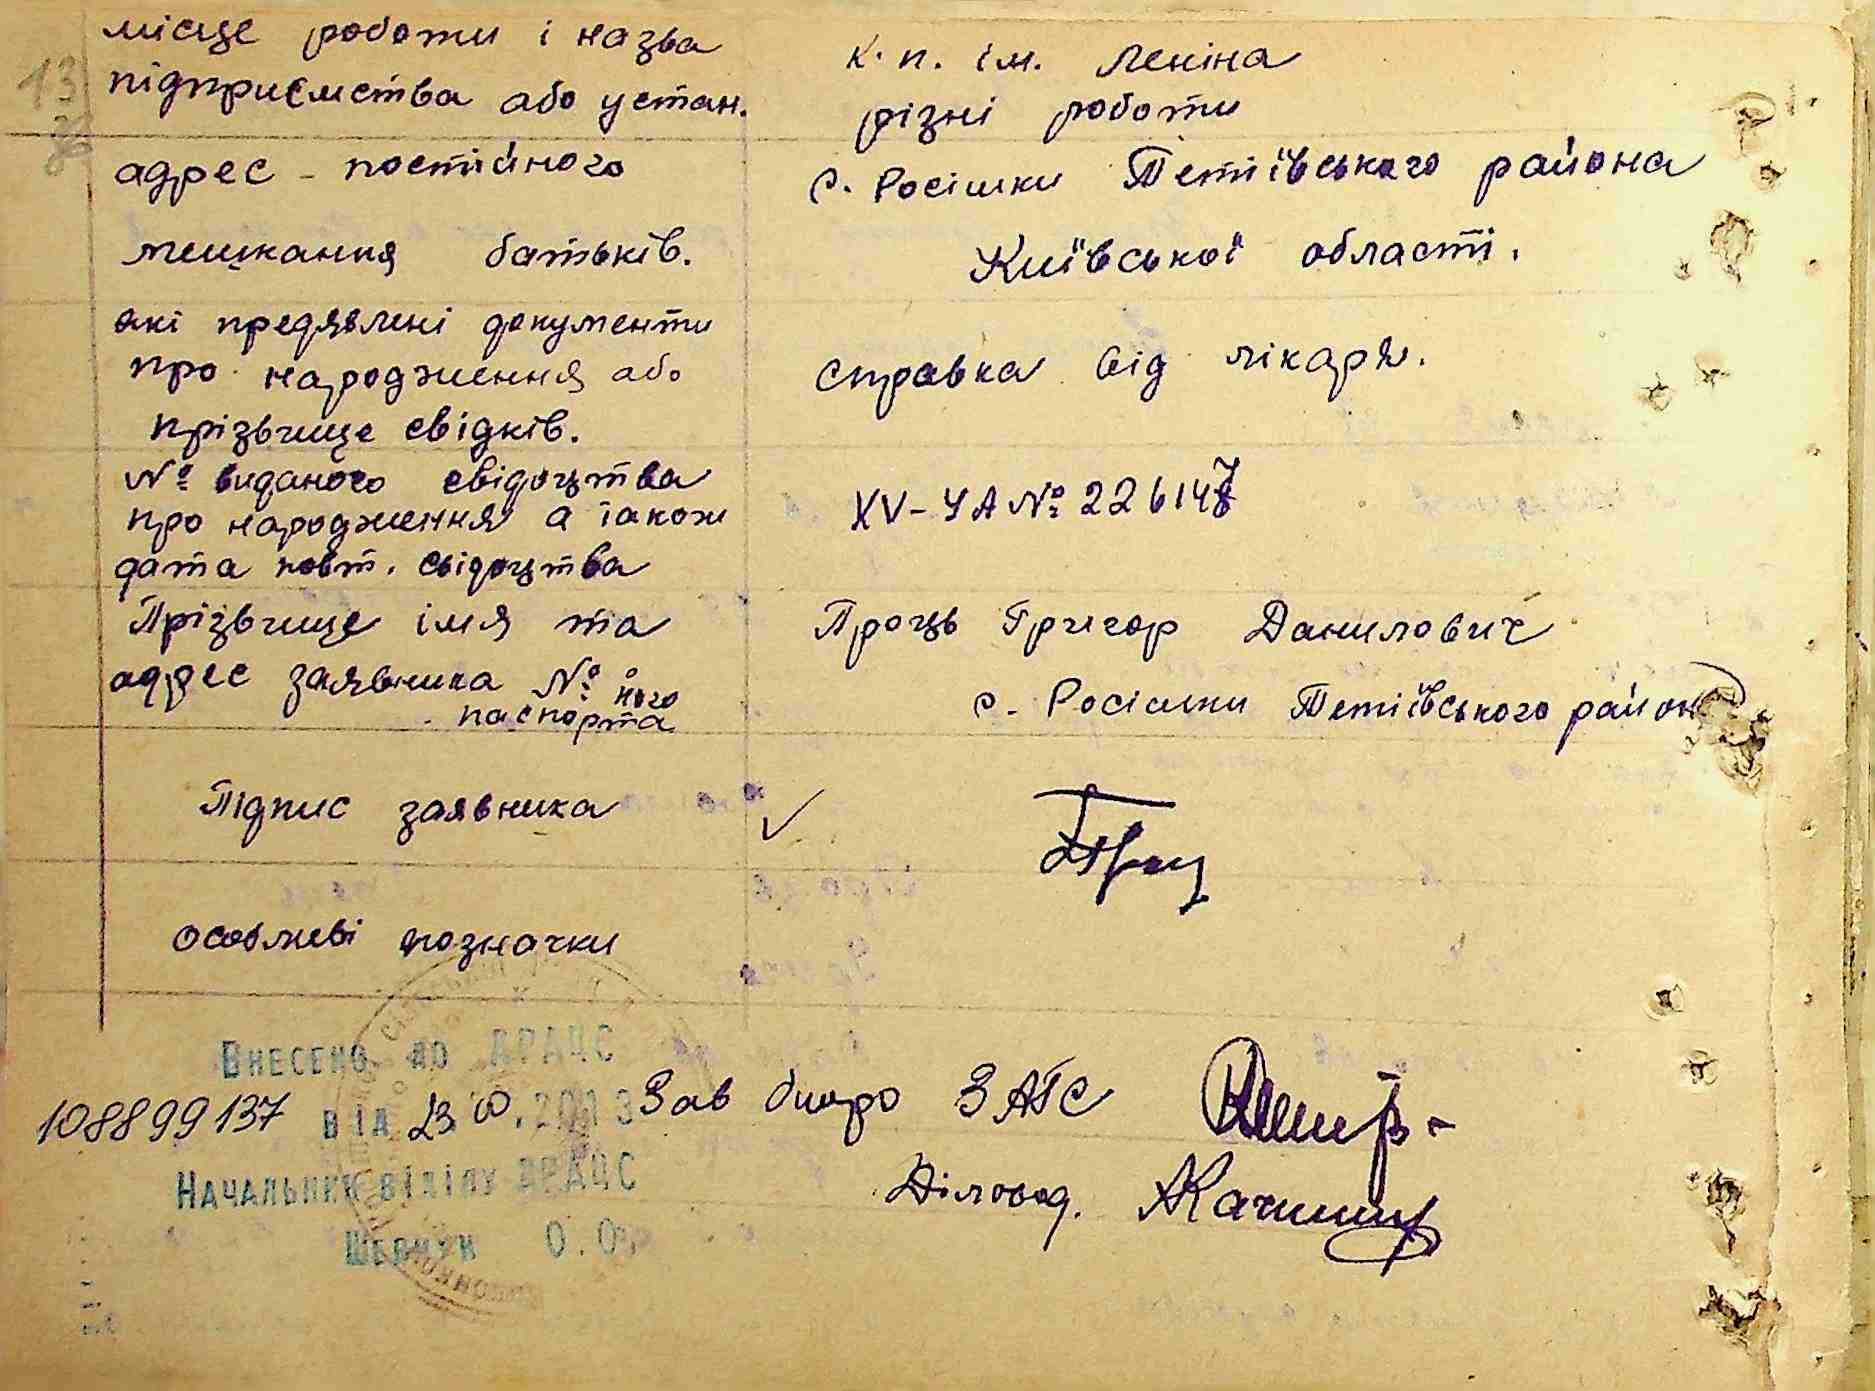 13
місце роботи і назва
підприємства або устан.
к. п. ім. Леніна
різні роботи
адрес - постійного
мешкання батьків.
с. Росішки Тетіївського района
Київської області.
які предявлені документи
про народження або
прізвище свідків.
справка від лікаря.
№ виданого свідоцтва
про народження а також
дата повт. свідоцтва
XV-УА № 226147
Прізвище імя та
адрес заявника № його
паспорта
Проць Григор Данилович
с. Росішки Тетіївського район
Підпис заявника
✓
Проц
особливі позначки
Внесено до ДРАЦС
108899137 від 23 .2013
Начальник відділу ДРАЦС
Зав бюро ЗАГС
Діловод.